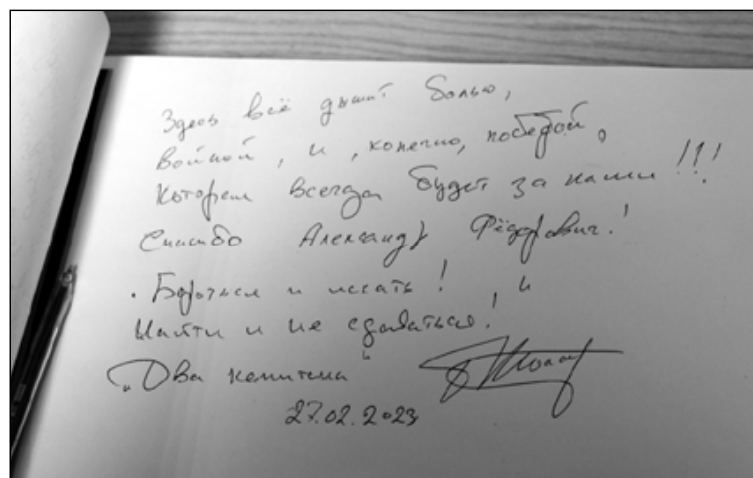 Здесь всё дышит болью,
войной, и, конечно, победой,
которая всегда будет за нами!!!
Спасибо Александр Фёдорович!
„Бороться и искать!
Найти и не сдаваться!"
„Два капитана"
27.02.2023